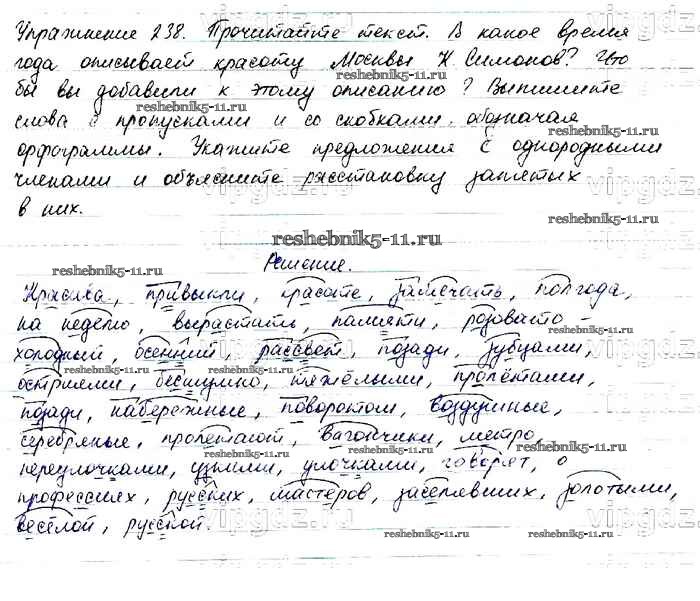 Упражнение 238. Прочитайте текст. В какое время
года описывает красоту Москвы К. Симонов? Что
бы вы добавили к этому описанию? Выпишите
слова с пропусками и со скобками, обозначая
орфограммы. Укажите предложения с однородными
членами и объясните расстановку запятых
в них.
reshebnik5-11.ru
Решение.
Красива, привыкли, красоте, замечать, полгода,
на неделю, вырастить, памяти, розовато -
холодный, осенний, рассвет, позади, зубцами,
остриями, бесшумно, тяжёлыми, пролётами,
позади, набережные, поворотом, воздушные,
серебряные, пролетают, вагончики, метро,
переулочками, узкими, улочками, говорят, о
профессиях, русских, мастеров, заселявших, золотыми,
весёлой, русской.